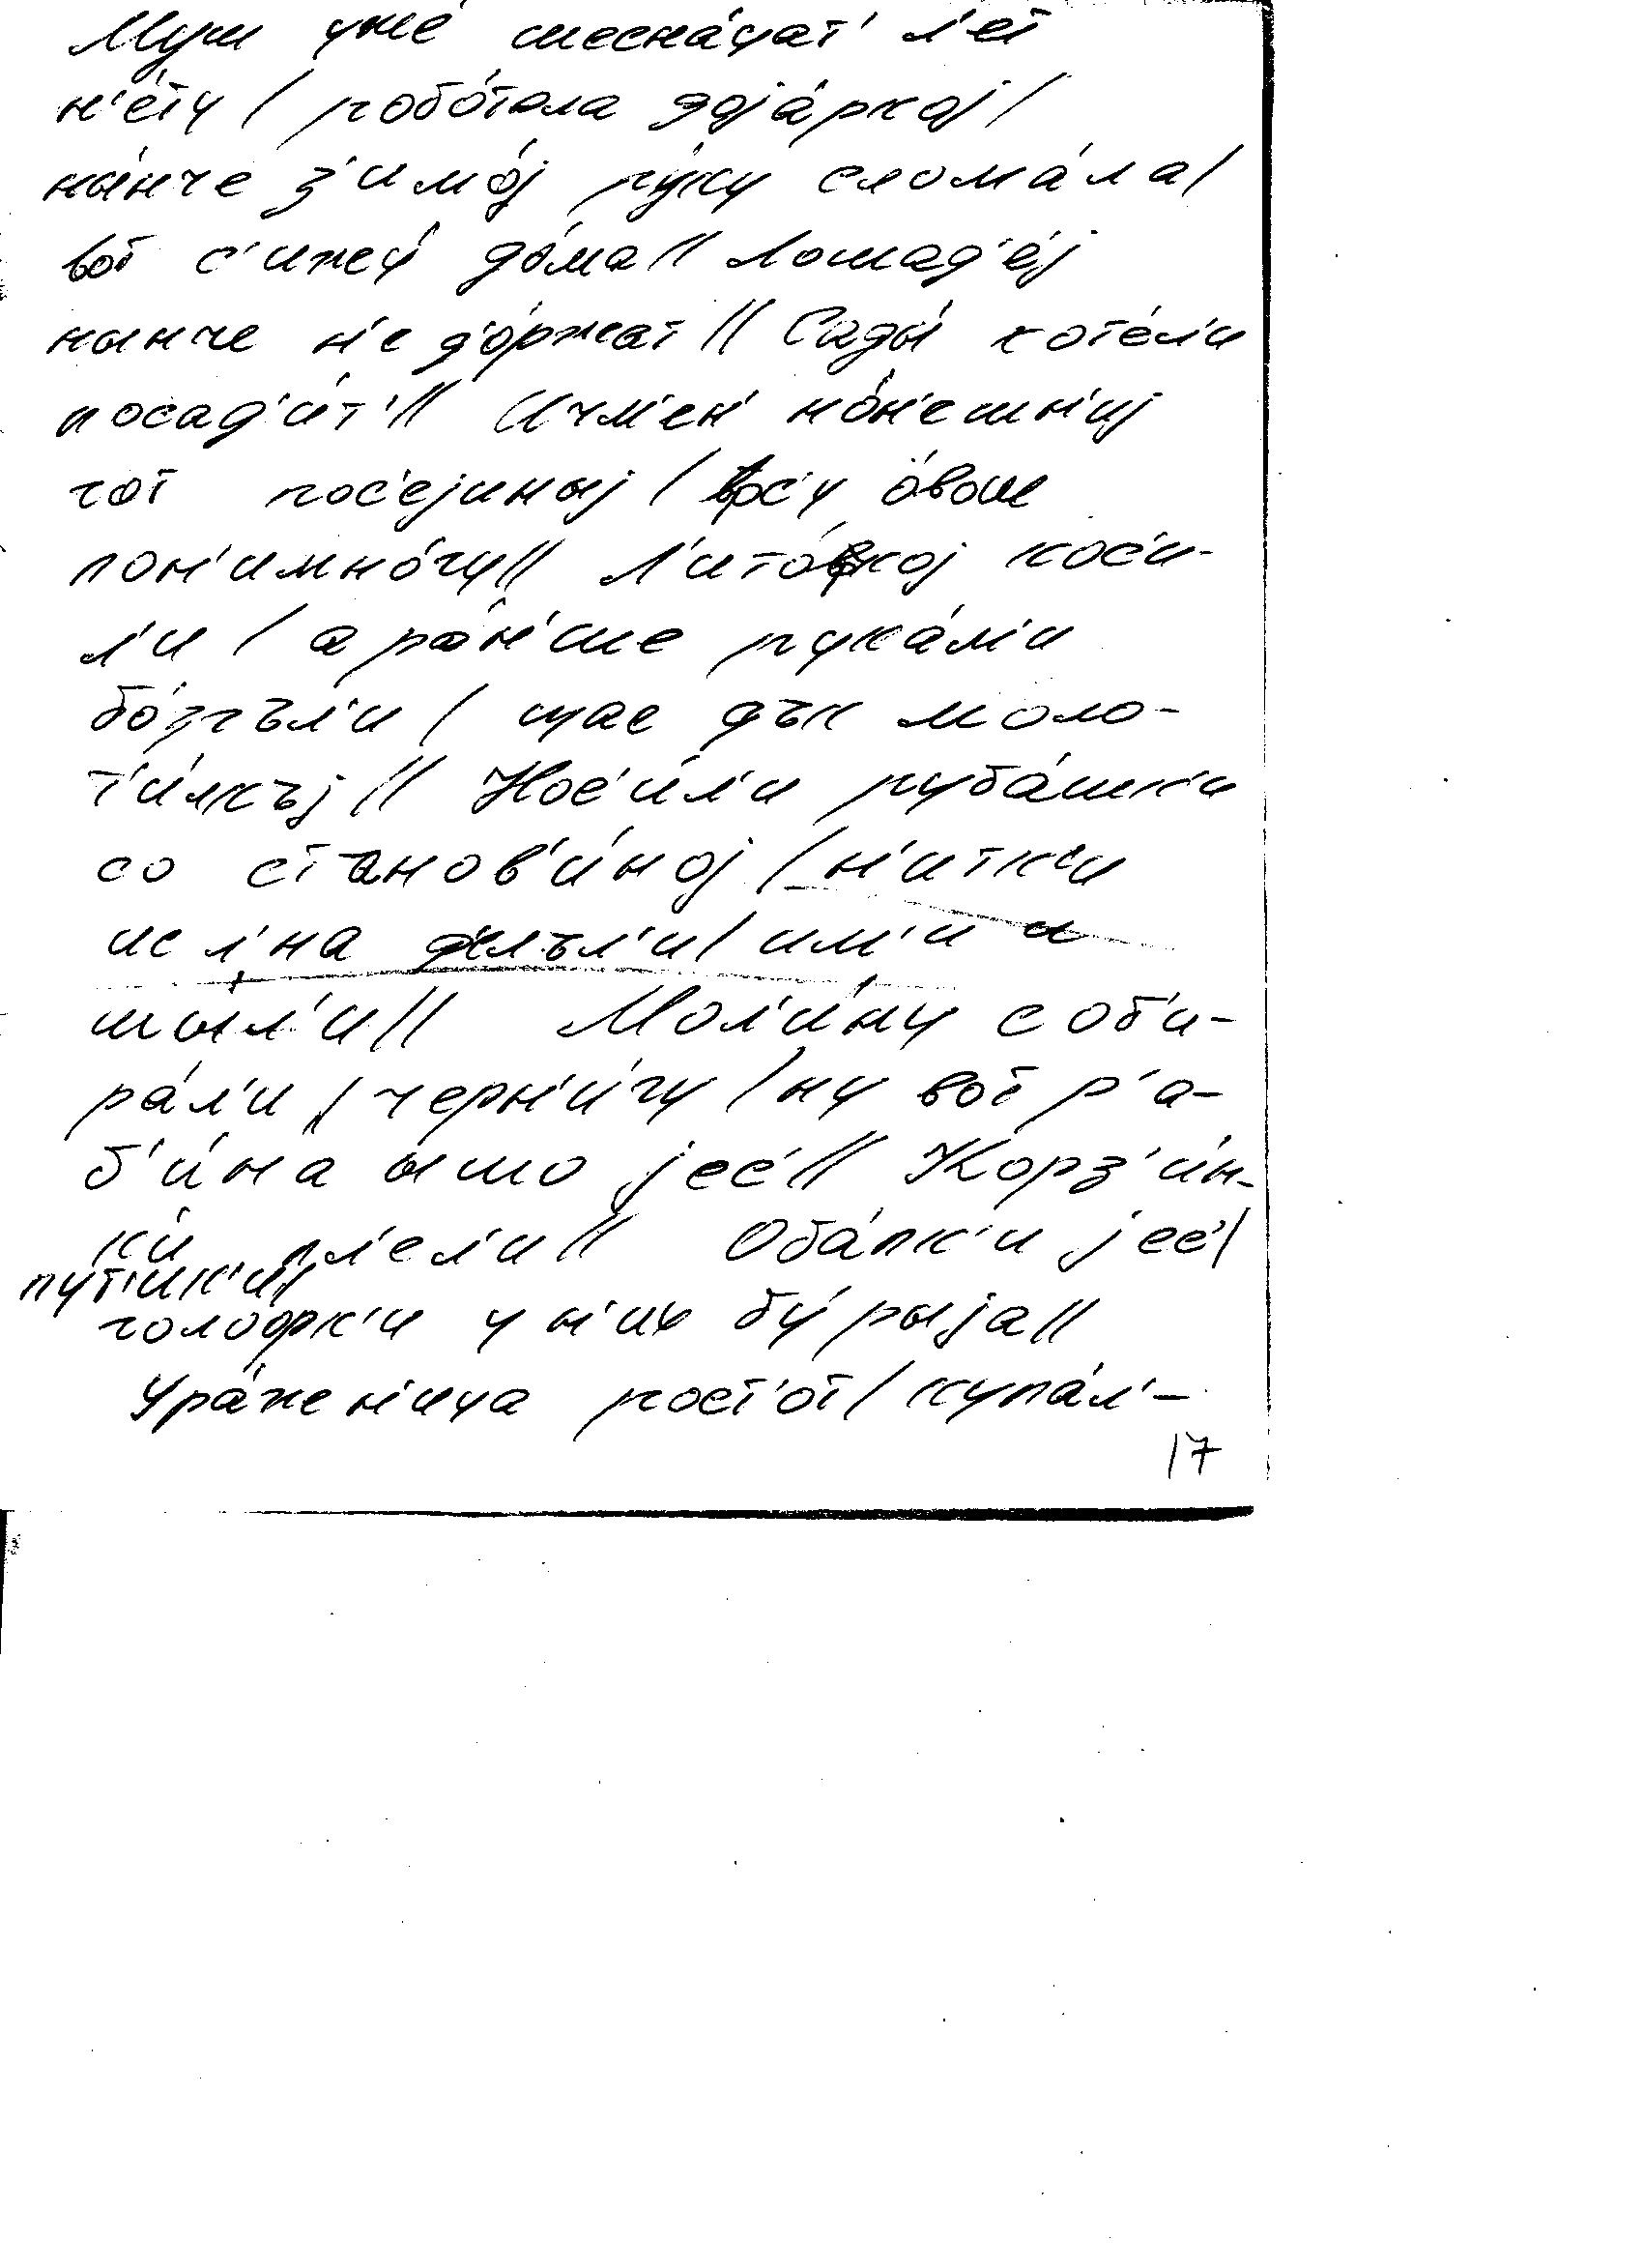 Муш уже́ шесна́цат' л'ет
н'е́ту / робо́тала доја́ркој /
ны́нче з'имо́ј ру́ку слома́ла /
вот с'ижу́ до́ма // Лошад'е́ј
нынче н'е д'о́ржат // Сады́ хоте́ли
посад'и́т' // Ичм'е́н' но́н'ешн'иј
гот пос'ејиныј / ро́с'у о́вош
пон'имно́гу // Л'ито́вкој кос'и-
л'и / а ра́н'ше рука́м'и
бо́згъл'и / щас дък моло-
т'и́лкъј // Нос'и́л'и руба́шк'и
со станов'и́ној / н'итк'и
ис л'на д'е́лъл'и / им'и и
шыл'и // Мал'и́ну соб'и-
ра́л'и / черн'и́гу / ну вот р'а-
б'и́на ышо јес'// Корз'и́н-
ки́ пл'ел'и // Оба́пк'и јес'/
пут'ик'и/
голофк'и у н'их бу́рыја //
Ура́жен'ица рост'о́т / купа́л'-
17